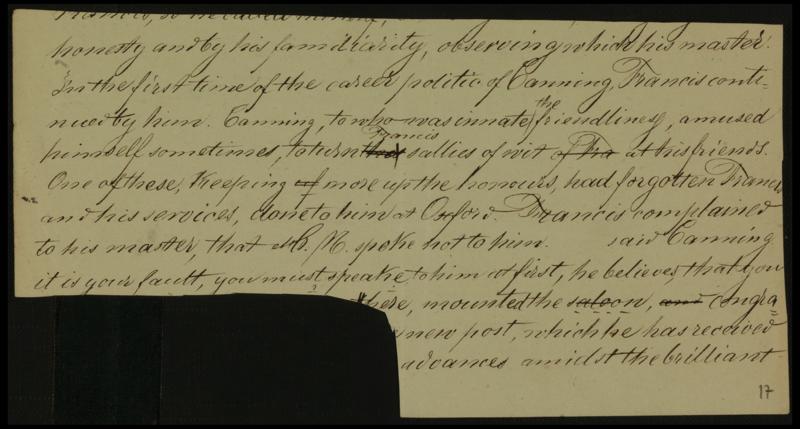 Francis, so he
honesty and by his familiarity, observing which his master.
In the first time of the career politic of Canning, Francis conti=
nued by him. Canning, to who was innate the friendliness, amused
himself sometimes, to turn Francis sallies of wit at his friends.
One of these, Keeping of more up the honours, had forgotten Francis
and his services, done to him at Oxford. Francis complained
to his master, that Mr. R. spoke not to him. said Canning
it is your fault, you must speake to him at first, he believes, that you
there, mounted the saloon, and congra
new post, which he has received
advances amidst the brilliant
17